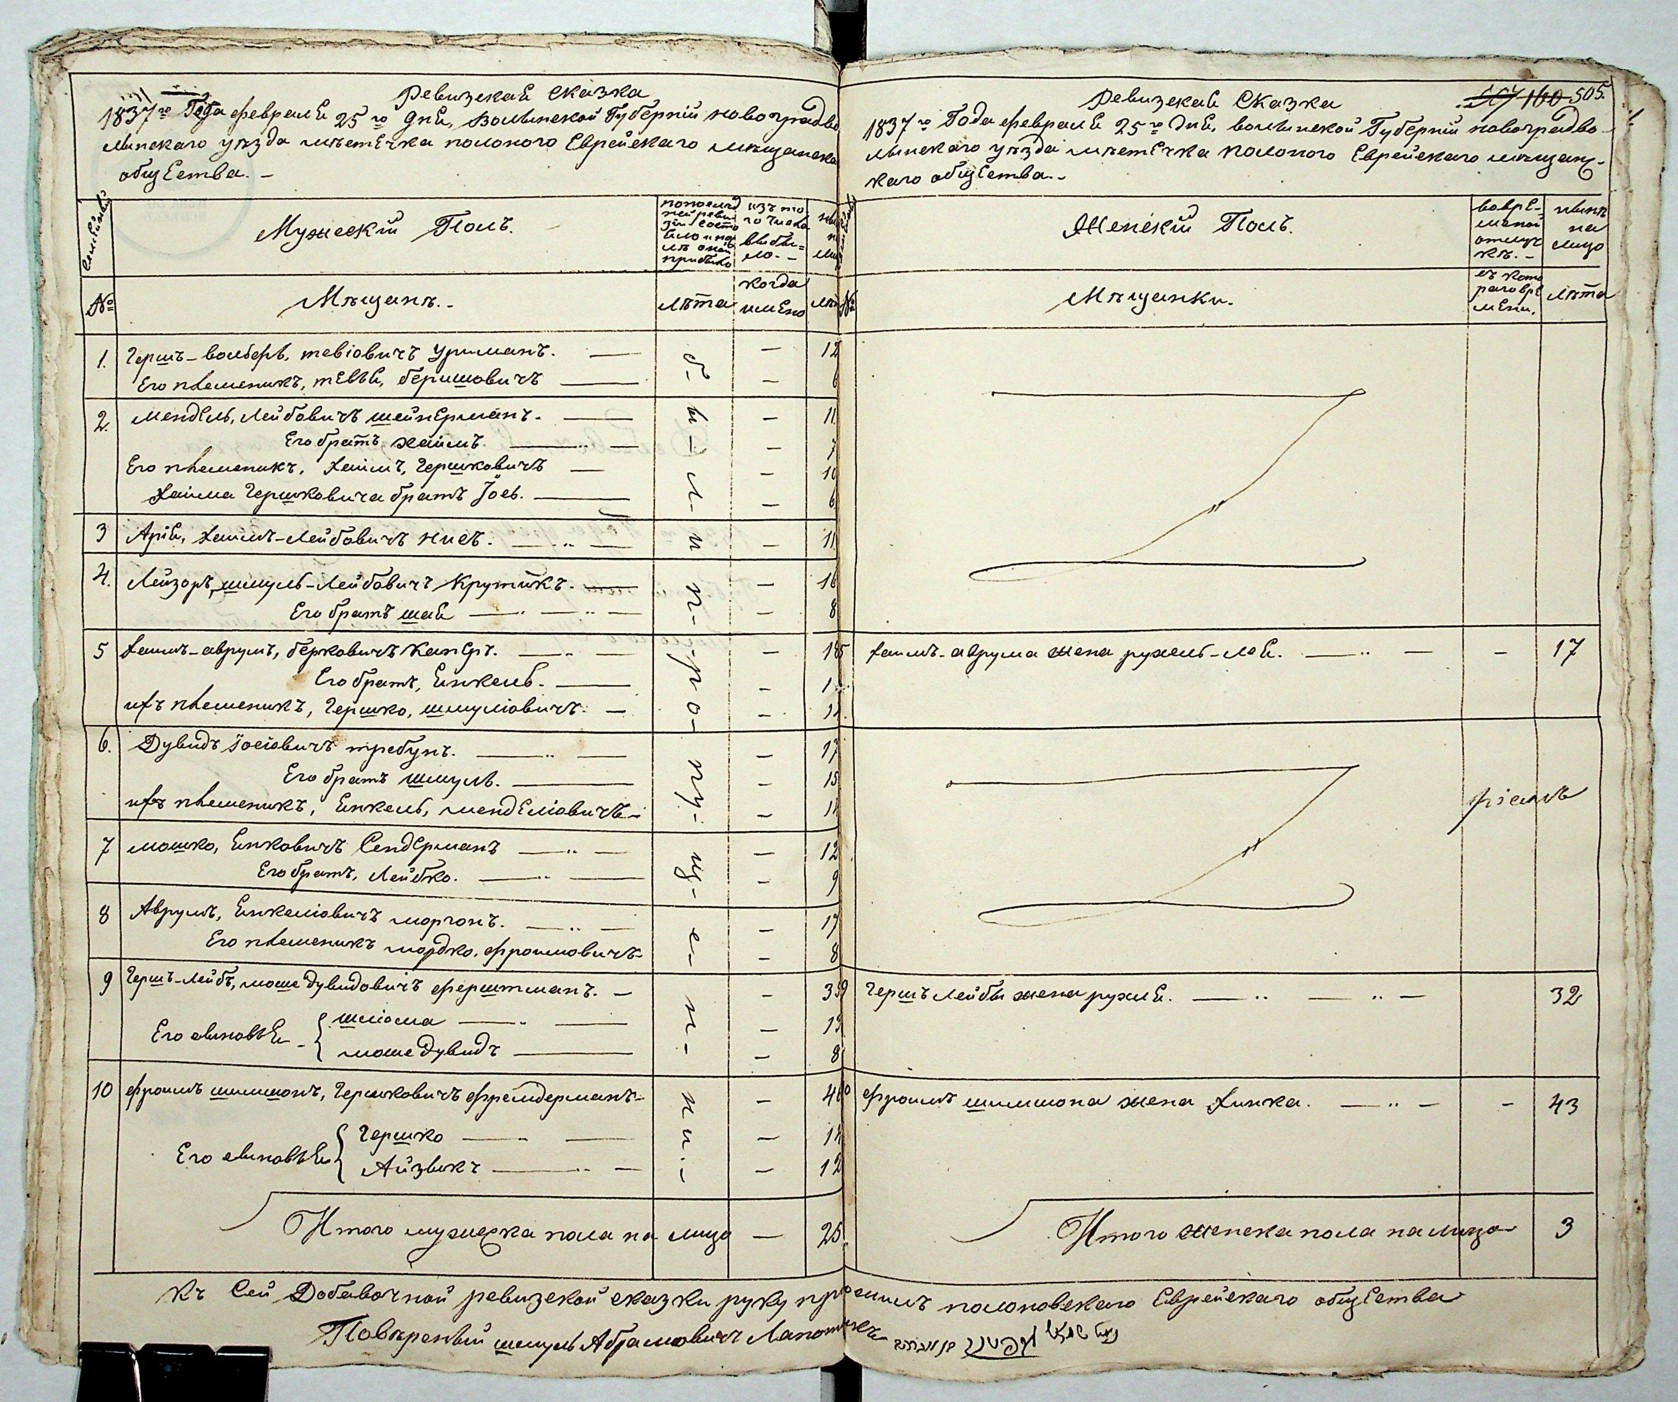 Ревизская Сказка
1837го Года февраля 25го дня, Волынской Губернии новоградво
лынского уѣзда мѣстечка полоного Еврейскаго мѣщанска
общества. -
Семейства
Мужескій Полъ.
по последней ревизіи состояло и после оной прибыло
изъ того числа выбыло. -
№
Мѣщане. -
лѣта
когда имено
1. Гершъ-волберъ, тевіовичъ урманъ. — — 12
Его племеникъ, тевья, беришовичъ — — 6
2. Мендель, Лейбовичъ шейнерманъ. — — 11
Его братъ хаимъ. — — 7
Его племеникъ, хаимъ, Гершковичъ — — 10
Хаима Гершковича братъ Іось. — — 6
3 Арія, хаимъ-Лейбовичъ нисъ. — — 11
4. Лейзоръ, шмуль-Лейбовичъ Крутикъ. — — 16
Его братъ шая — — 8
5 хаимъ-аврумъ, берковичъ Канеръ. — — 18
Его братъ, Янкель. — —
ихъ племеникъ, Гершко, шмуліовичъ. — —
6. Дувидъ Іосіовичъ требунъ. — — 17
Его братъ шмуль. — — 15
ихъ племеникъ, Янкель, менделіовичъ — — 11
7 мошко, Янковичъ Сендерманъ — — 12
Его братъ, Лейбко. — — 9
8 Аврумъ, Янкеліовичъ моргонъ. — — 17
Его племеникъ мордко, фроимовичъ — — 8
9 Гершъ-Лейбъ, моше дувидовичъ ферштманъ. — — 39
Его сыновья { шліома — — 13
моше дувидъ — — 8
10 фроимъ шимшонъ, Гершковичъ фремдерманъ — — 40
Его сыновья { Гершко — — 14
Айзыкъ — — 12
были пропущенни. —
Итого мужеска пола на лицо — 25.
Ревизская Сказка
160 505.
1837го Года февраля 25го дня, волынской Губерніи новоградво-
лынскаго уѣзда мѣстечка полоного Еврейскаго мѣщанс-
каго общества. -
№
Женскій Полъ.
во временой отлучке. -
ныне на лицо
Мѣщанки.
съ котораго времени.
лѣта
хаимъ-аврума жена рухель-лея. — — 17
Гершъ Лейбы жена рухля. — 32
фроимъ шимшона жена хинка. — — 43
Итого женска пола на лицо 3
къ Сей Добавочной ревизской сказки руку приложилъ полоновскаго Еврейскаго общества
Повѣренный шмуль Абрамовичъ